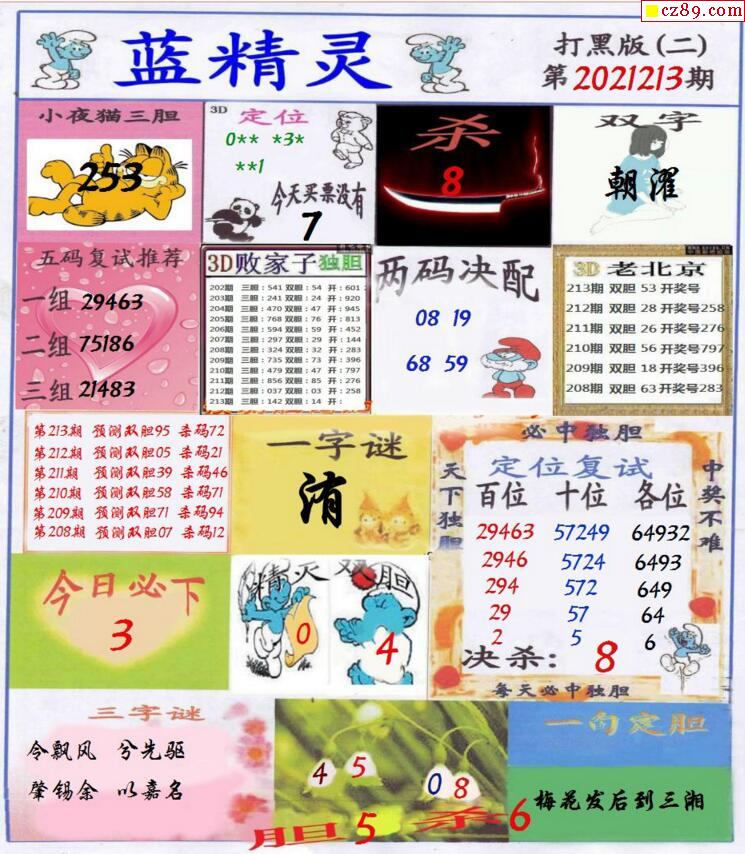 cz89.com
蓝精灵
打黑版(二)
第2021213期
小夜猫三胆
253
3D 定位
0** *3*
**1
今天买票没有
7
杀
8
双字
朝濯
五码复试推荐
一组 29463
二组 75186
三组 21483
3D败家子独胆
202期 三胆:541 双胆:54 开:601
203期 三胆:241 双胆:24 开:920
204期 三胆:470 双胆:47 开:945
205期 三胆:768 双胆:76 开:813
206期 三胆:594 双胆:59 开:452
207期 三胆:297 双胆:29 开:144
208期 三胆:324 双胆:32 开:283
209期 三胆:735 双胆:73 开:396
210期 三胆:479 双胆:47 开:797
211期 三胆:856 双胆:85 开:276
212期 三胆:037 双胆:03 开:258
213期 三胆:142 双胆:14 开:
两码决配
08 19
68 59
3D 老北京
213期 双胆 53 开奖号
212期 双胆 28 开奖号258
211期 双胆 26 开奖号276
210期 双胆 56 开奖号797
209期 双胆 18 开奖号396
208期 双胆 63 开奖号283
第213期 预测双胆95 杀码72
第212期 预测双胆05 杀码21
第211期 预测双胆39 杀码46
第210期 预测双胆58 杀码71
第209期 预测双胆71 杀码94
第208期 预测双胆07 杀码12
一字谜
洧
必中独胆
天下独胆
中奖不难
定位复试
百位 十位 各位
29463 57249 64932
2946 5724 6493
294 572 649
29 57 64
2 5 6
决杀: 8
每天必中独胆
今日必下
3
精灵双胆
0 4
三字谜
令飘风 兮先驱
肇锡余 以嘉名
4 5 0 8
胆5 杀6
一句定胆
梅花发后到三湘